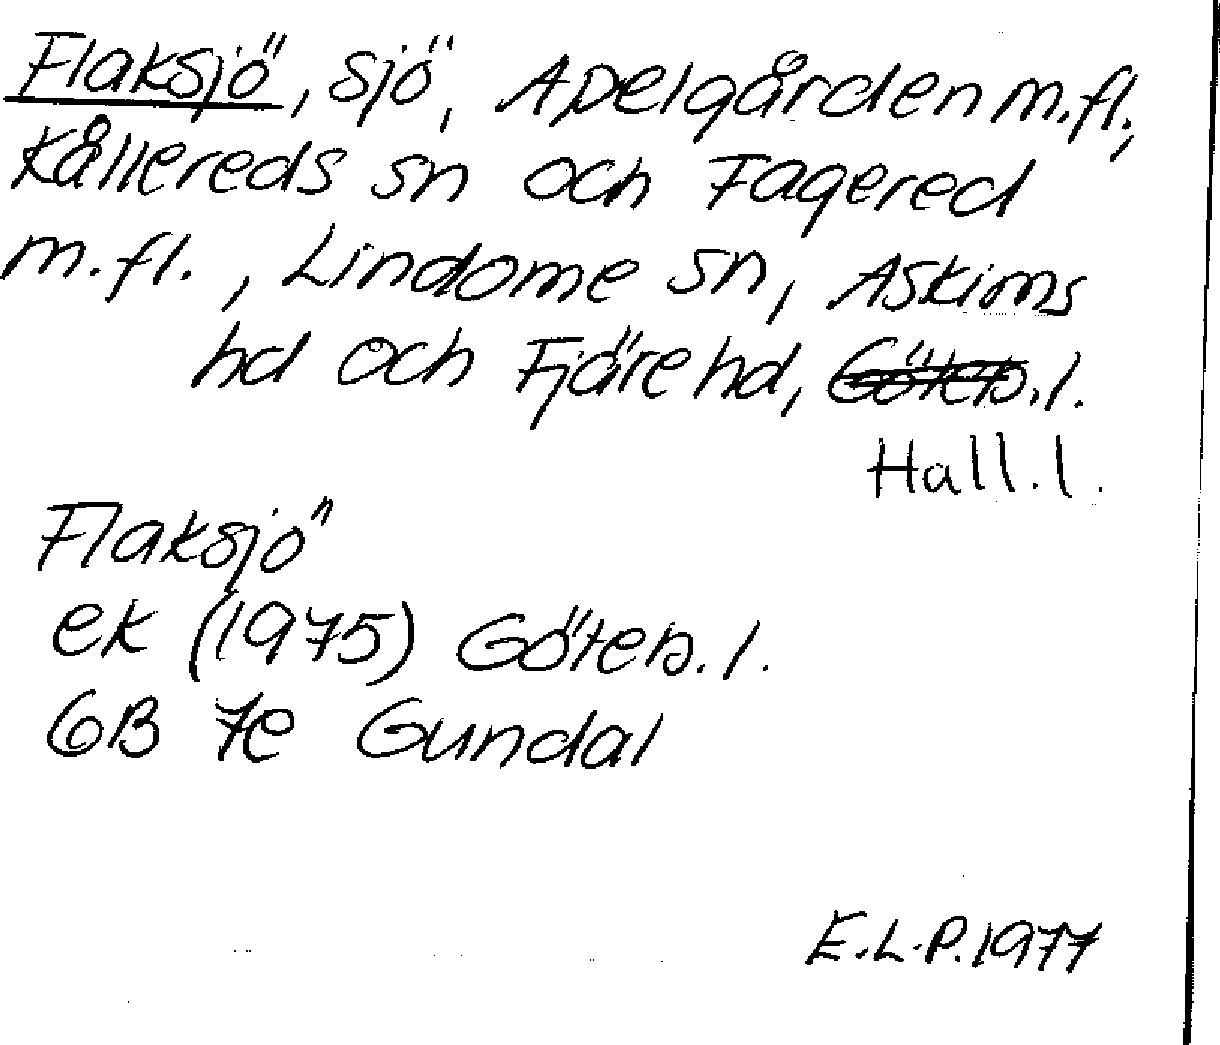 Flaksjö, sjö, Apelgården m.fl.,
Kållereds sn och Fagered
m.fl., Lindome sn, Askims
hd och Fjäre hd, Göteb.l.
Hall.l.
Flaksjö
ek (1975) Göteb.l.
6B 7e Gundal
E.L.P.1977